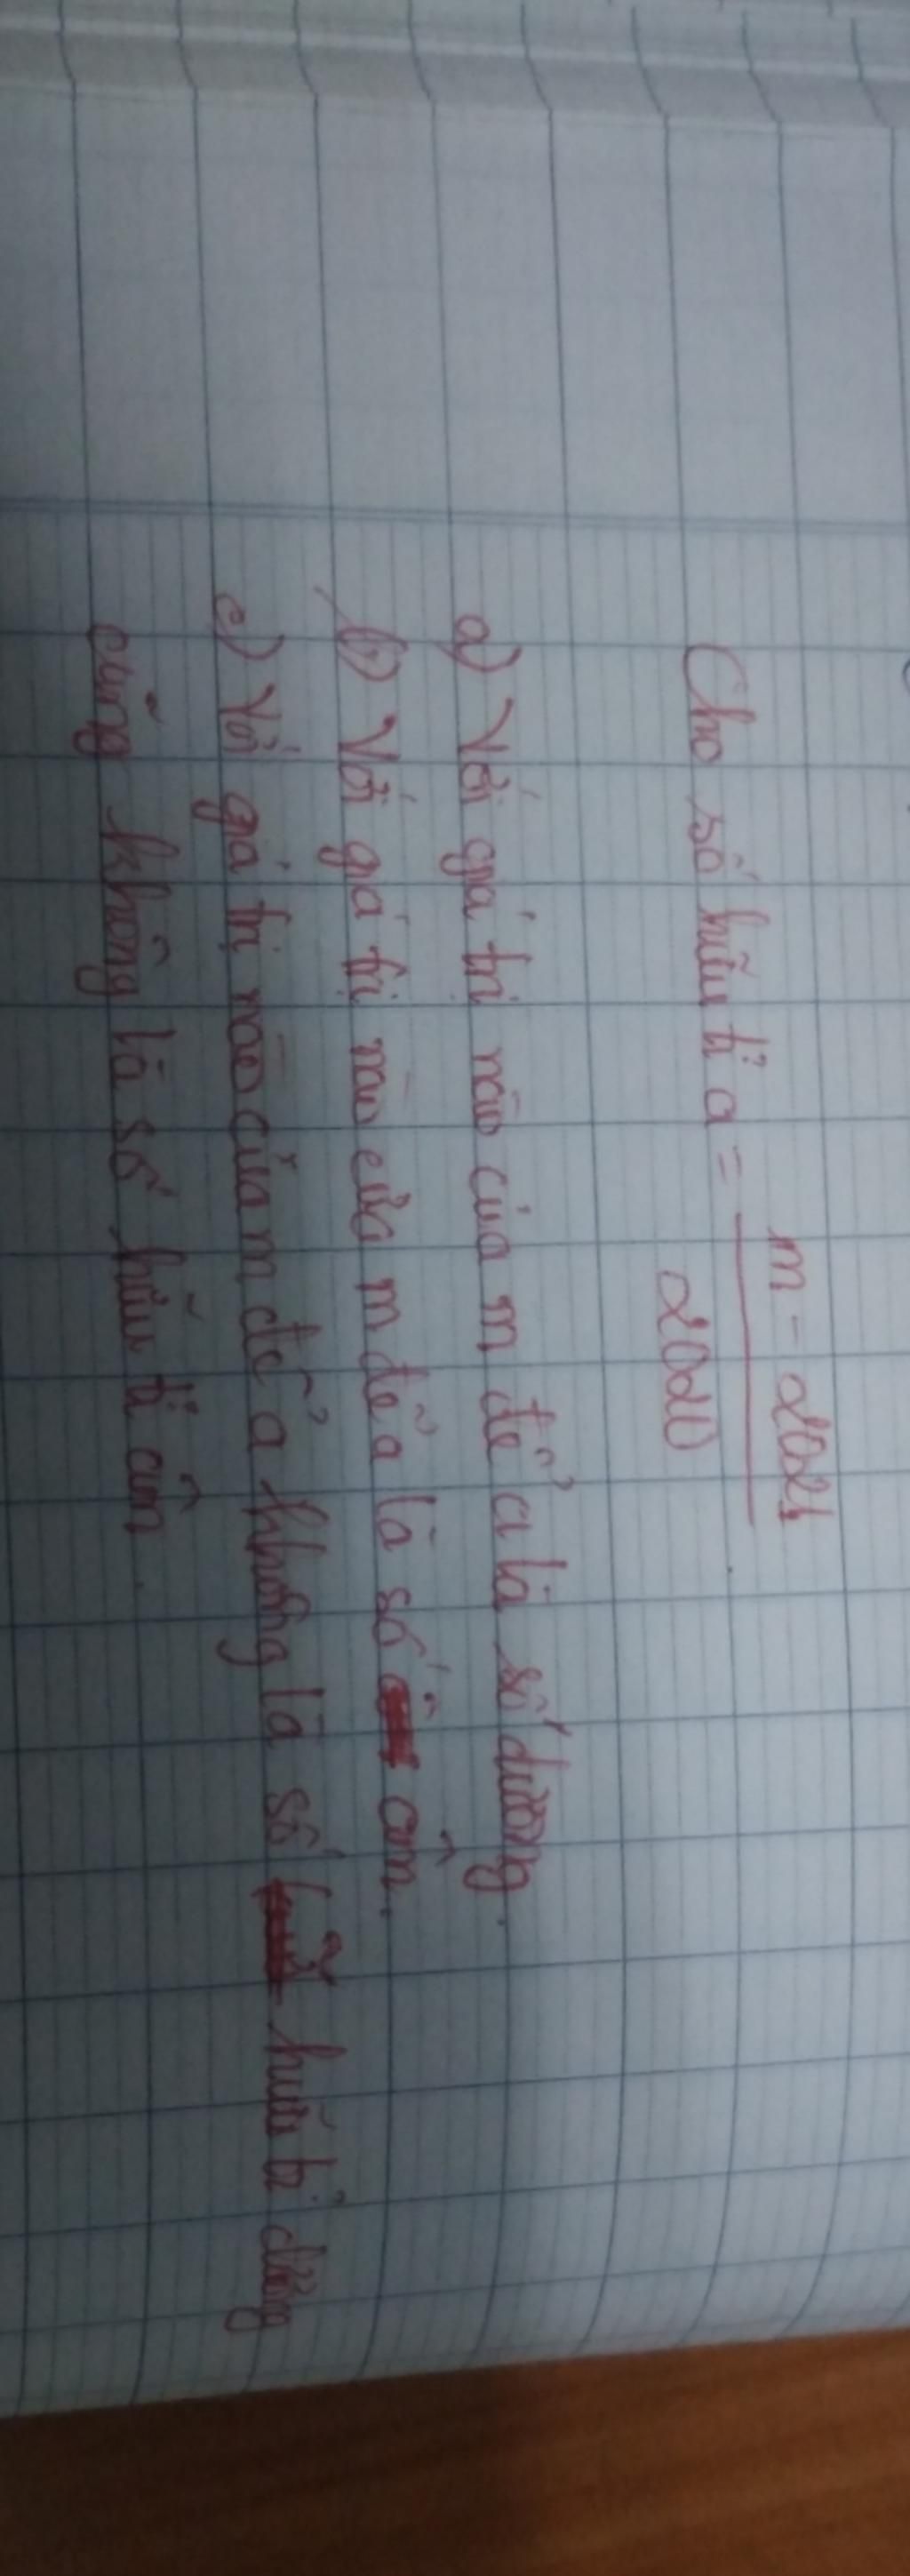 Cho số hữu tỉ a = m - 2021 / 2020
a) Với giá trị nào của m để a là số dương.
b) Với giá trị nào của m để a là số âm.
c) Với giá trị nào của m để a không là số hữu tỉ dương
cũng không là số hữu tỉ âm.